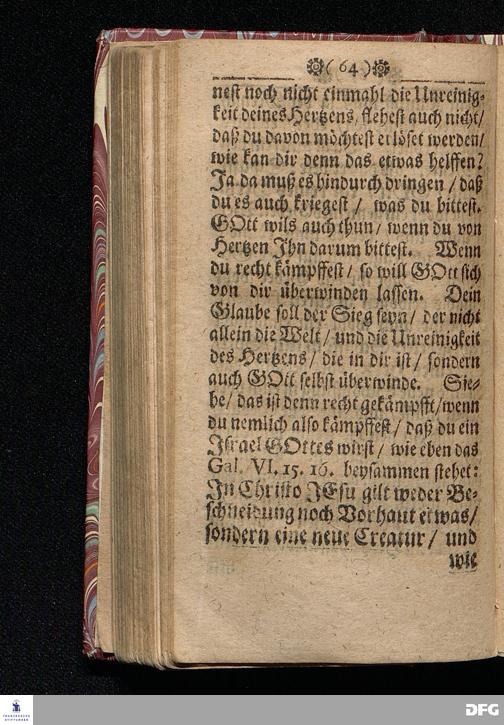 ( 64 )
nest noch nicht einmahl die Unreinig-
keit deines Hertzens, flehest auch nicht/
daß du davon möchtest erlöset werden/
wie kan dir denn das etwas helffen?
Ja da muß es hindurch dringen / daß
du es auch kriegest / was du bittest.
GOtt wils auch thun / wenn du von
Hertzen Jhn darum bittest. Wenn
du recht kämpffest / so will GOtt sich
von dir überwinden lassen. Dein
Glaube soll der Sieg seyn / der nicht
allein die Welt / und die Unreinigkeit
des Hertzens / die in dir ist / sondern
auch GOtt selbst überwinde. Sie-
he / das ist denn recht gekämpfft / wenn
du nemlich also kämpffest / daß du ein
Jsrael GOttes wirst / wie eben das
Gal. VI. 15. 16. beysammen stehet:
Jn Christo JEsu gilt weder Be-
schneidung noch Vorhaut etwas /
sondern eine neue Creatur / und
wie
FRANCKESCHE STIFTUNGEN
DFG